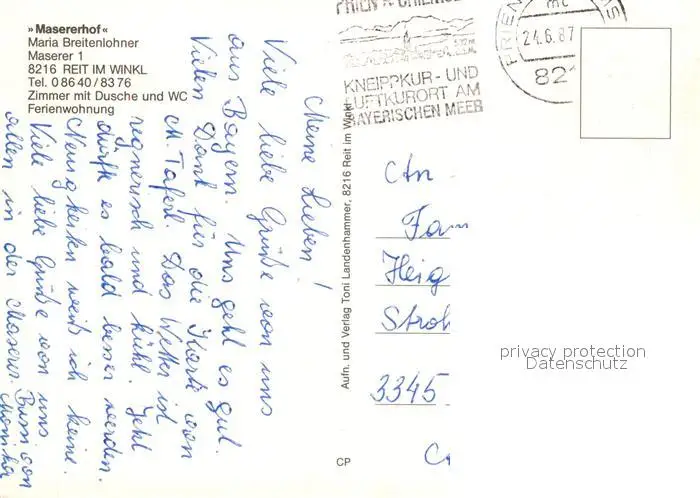 »Masererhof«
Maria Breitenlohner
Maserer 1
8216 REIT IM WINKL
Tel. 0 86 40 / 83 76
Zimmer mit Dusche und WC
Ferienwohnung
PRIEN
24.6.87
82
KNEIPPKUR- UND
LUFTKURORT AM
BAYERISCHEN MEER
Meine Lieben!
Viele liebe Grüße von uns
aus Bayern. Uns geht es gut.
Vielen Dank für die Karte von
M. Taferl. Das Wetter ist
regnerisch und kühl. Jetzt
dürfte es bald besser werden.
Neuigkeiten weiß ich keine.
Viele liebe Grüße von uns
allen in der Maserer.
Bussi von
Monika
Aufn. und Verlag Toni Landenhammer, 8216 Reit im Winkl
CP
An
Fam
Heig
Stroh
3345
privacy protection
Datenschutz